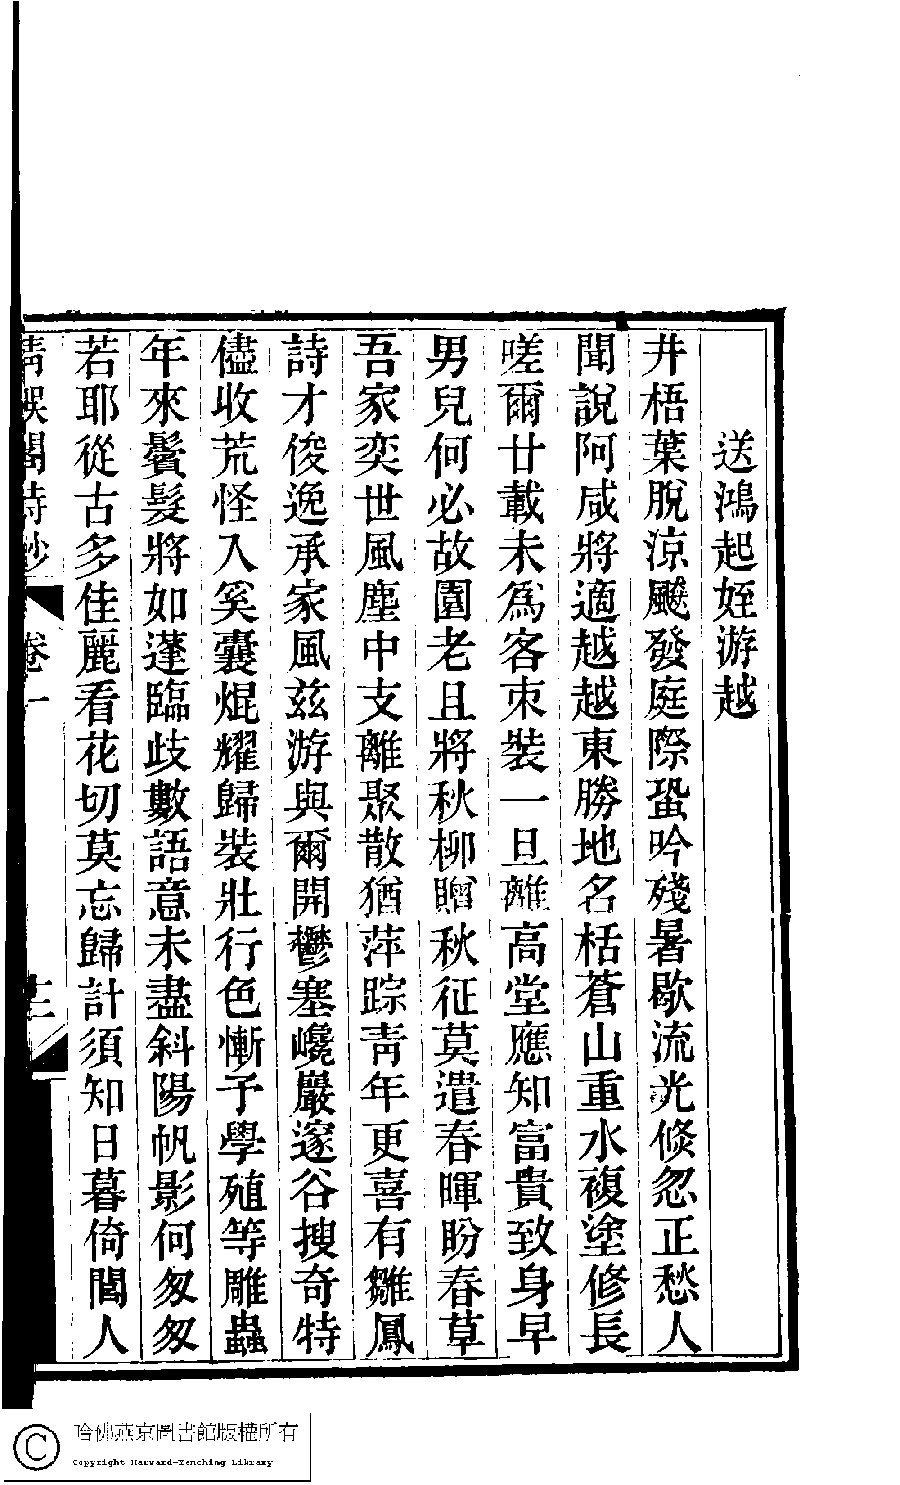 送鴻起姪游越
井梧葉脫涼颸發庭際蛩吟殘暑歇流光倐忽正愁人
聞說阿咸將適越越東勝地名栝蒼山重水複塗修長
嗟爾廿載未爲客朿裝一旦離高堂應知富貴致身早
男兒何必故園老且將秋柳贈秋征莫遣春暉盼春草
吾家奕世風塵中支離聚散猶萍踪靑年更喜有雛鳳
詩才俊逸承家風茲游與爾開鬱塞巉巖邃谷搜奇特
儘收荒怪入奚囊焜耀歸裝壯行色慚予學殖等雕蟲
年來鬢髮將如蓬臨歧數語意未盡斜陽帆影何匆匆
若耶從古多佳麗看花切莫忘歸計須知日暮倚閭人
閣詩鈔
卷一
哈佛燕京圖書館版權所有
Copyright Harvard-Yenching Library